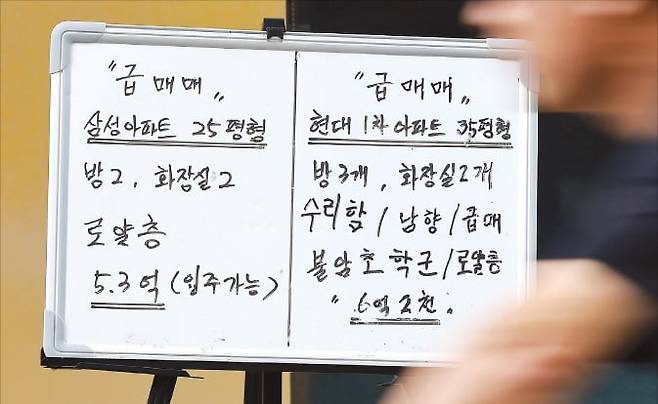 "급매매"
삼성아파트 25평형
방2, 화장실2
로얄층
5.3억 (입주가능)
"급매매"
현대 1차 아파트 35평형
방3개, 화장실2개
수리함/남향/급매
불암초 학군/로얄층
" 6억2천.